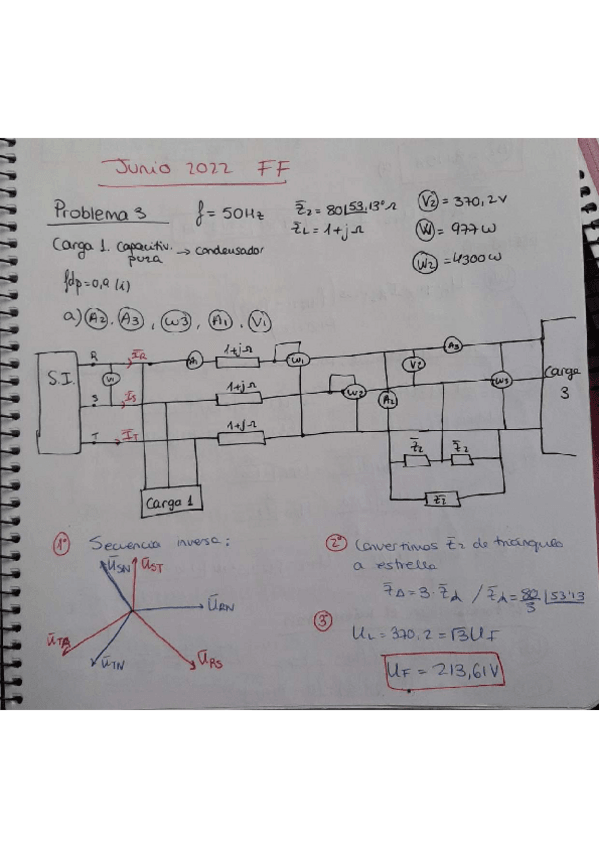 Junio 2022 FF
Problema 3
f = 50Hz
Z̄2 = 80∠53,13° Ω
Z̄L = 1+j Ω
V2 = 370,2V
W = 977W
W2 = 4300W
Carga 1. Capacitiv. pura → condensador
fdp = 0,9 (i)
a) A2, A3, W3, A1, V1
S.I.
R
ĪR
V1
A1
1+jΩ
W1
A3
V2
S
ĪS
1+jΩ
W2
A2
W3
Carga
3
T
ĪT
1+jΩ
Z̄2
Z̄2
Z̄2
Carga 1
1º Secuencia inversa:
ŪSN
ŪST
ŪRN
ŪTR
ŪTN
ŪRS
2º Convertimos Z̄2 de triángulo
a estrella
Z̄Δ = 3·Z̄⅄ / Z̄⅄ = 80/3 ∠53'13
3º
UL = 370,2 = √3 UF
UF = 213,61V